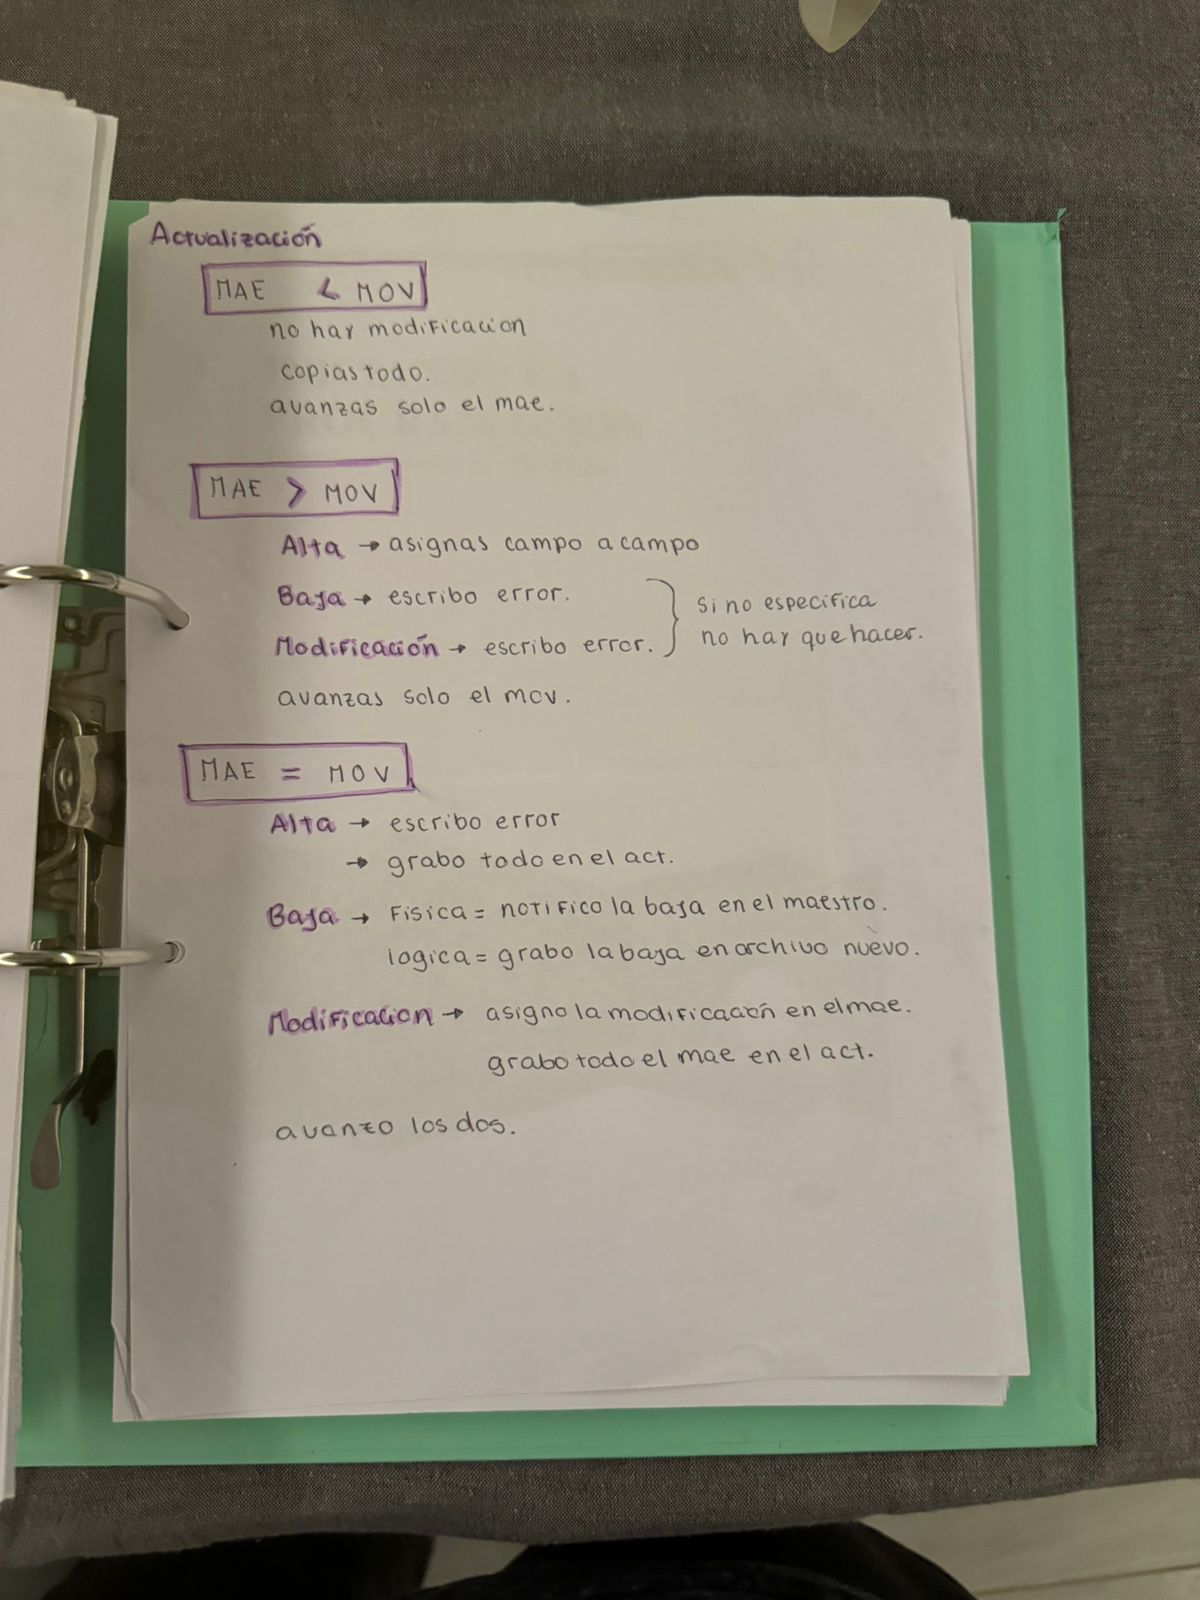 Actualización
MAE < MOV
no hay modificacion
copias todo.
avanzas solo el mae.
MAE > MOV
Alta → asignas campo a campo
Baja → escribo error.
Modificación → escribo error.
si no especifica
no hay que hacer.
avanzas solo el mov.
MAE = MOV
Alta → escribo error
→ grabo todo en el act.
Baja → Fisica = notifico la baja en el maestro.
logica = grabo la baja en archivo nuevo.
Modificacion → asigno la modificación en el mae.
grabo todo el mae en el act.
avanzo los dos.